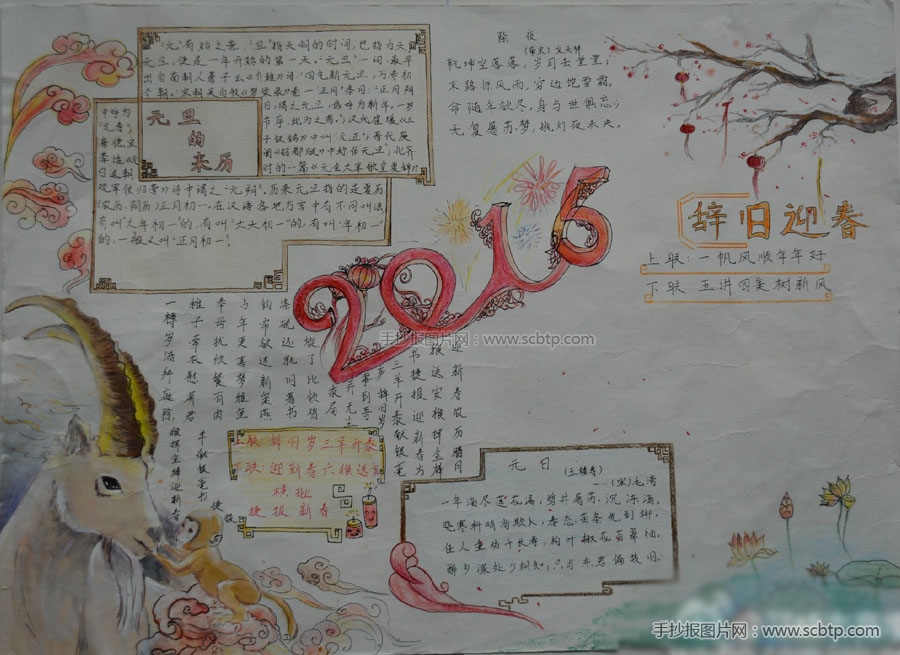 元旦
的
来历
"元"有始之意，"旦"指天明的时间，也指白天。
元旦，便是一年开始的第一天。"元旦"一词，最早
出自南朝人萧子云《介雅》诗："四气新元旦，万寿初
今朝。"宋朝吴自牧《梦粱录》卷一"正月"条目："正月朔
日，谓之元旦，俗呼为新年。一岁
节序，此为之首。"汉代崔瑗《三
子钗铭》中叫"元正"；晋代庾
时的一篇《元会大享歌皇夏辞》
中呼为
"元春"；
唐德宗
李适《元
日退朝
观军仗归营》诗中谓之"元朔"。历来元旦指的是夏历
(农历、阴历)正月初一。在汉语各地方言中有不同叫法，
有叫"大年初一"的，有叫"大天初一"的，有叫"年初一"
的，一般又叫"正月初一"！
除夜
(南宋)文天祥
乾坤空落落，岁月去堂堂；
末路惊风雨，穷边饱雪霜。
命随年欲尽，身与世俱忘；
无复屠苏梦，挑灯夜未央。
辞旧迎春
上联：一帆风顺年年好
下联：五讲四美树新风
2015
手抄报图片网：www.scbtp.com
一樽岁酒拜庭除
稚子牵衣慰屏居
奉母执炊餐有肉
占年更喜梦维鱼
钩帘欲送新巢燕
涤砚还疏旧著书
上联：辞旧岁三羊开泰
下联：迎新春六猴送
横批
捷报新春
元日
(玉楼春)
——(宋)毛滂
一年滴尽莲花漏，碧井屠苏沉冻酒。
晓寒料峭尚欺人，春态苗条先到柳。
佳人重劝千长寿，柏叶椒花芬翠袖。
醉乡深处少相知，只与东君偏故旧。
手抄报图片网：www.scbtp.com